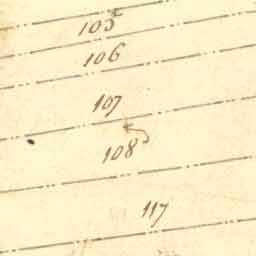 105
106
107
108
117